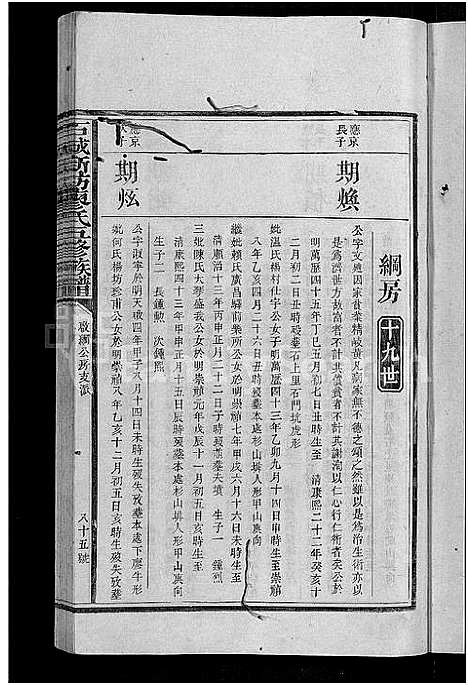 綱房 十九世
應京長子
期煥
公字文遠因家貧業精岐黃凡病家無不德之頌之然雖以是為治生術亦以
是為濟世方故富者不計其償貧者不計其謝洵以仁心行仁術者矣公於
明萬歷四十五年丁巳五月初七日丑時生至 清康熙二十二年癸亥十
二月初二日丑時歿葬石上里石門坑虎形
妣溫氏楊村仕宇公女於明萬歷四十三年乙卯九月十四日申時生至崇禎
八年乙亥四月二十六日丑時歿葬本處杉山埠人形甲山庚向
繼妣賴氏廣昌驛前樂所公女於明崇禎七年甲戌六月十六日未時生至
清順治十三年丙申正月二十二日午時歿子時歿葬夫墳 生子一 鍾烈
三妣陳氏大畬盛我公女於明崇禎元年戊辰十一月初三日亥時生至
清康熙四十三年甲申正月十五日辰時歿葬本處杉山埠人形甲山庚向
生子二 長鍾勲 次鍾熙
應京次子
期炫
公字淑寧於明天啟四年甲子八月十四日未時生歿失攷葬本處下窰牛形
妣何氏楊坊豫甫公女於明崇禎八年乙亥十二月初五日亥時生歿失攷葬
石城新坊廖氏五修族譜
啟綱公房支派
八十五號